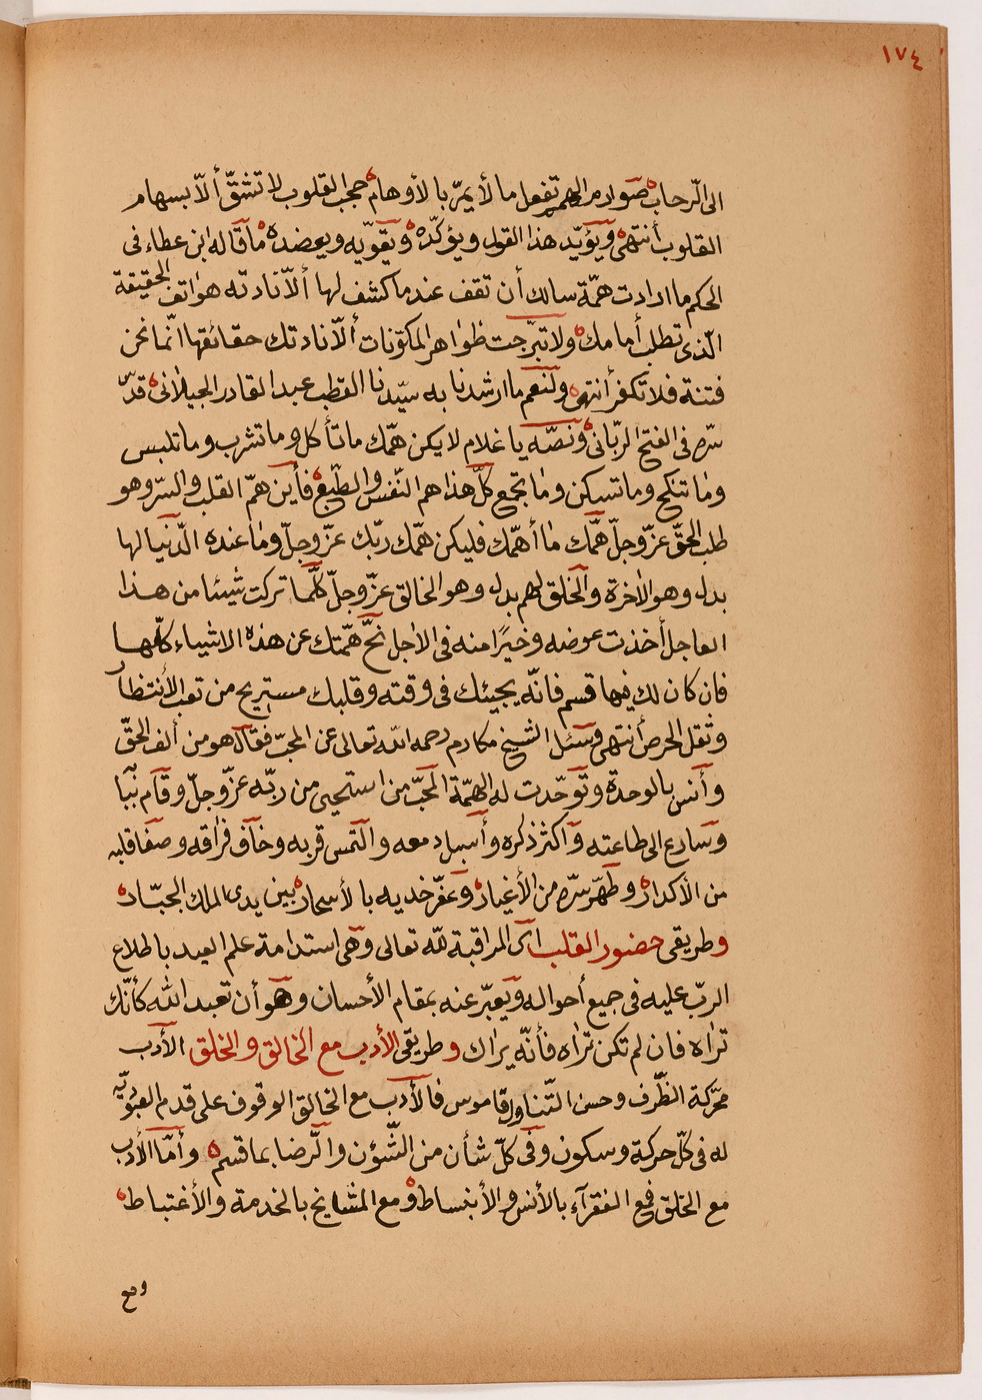 ١٧٤
الى الرحاب صوارم الهمم تفعل ما لا يمرّ بالأوهام حجب القلوب لا تشقّ ألّا بسهام
القلوب أنتهى ويؤيّد هذا القول ويؤكّده ويقوّيه ويعضده ما قاله ابن عطاء فى
الحكم ما ارادت همّة سالك أن تقف عند ما كشف لها ألّا نادته هواتف الحقيقة
الّذى تطلب أمامك ولا تبرّجت ظواهر المكوّنات ألّا نادتك حقائقها انّما نحن
فتنة فلا تكفر أنتهى ولنعم ما ارشدنا به سيّدنا القطب عبد القادر الجيلانى قدّس
سرّه فى الفتح الربّانى ونصّه يا غلام لا يكن همّك ما تأكل وما تشرب وما تلبس
وما تنكح وما تسكن وما تجمع كلّ هذا هم النّفس والطّبع فأين همّ القلب والسرّ وهو
طلب الحقّ عزّ وجلّ همّك ما أهمّك فليكن همّك ربّك عزّ وجلّ وما عنده الدّنيا لها
بدل وهو الاٰخرة والخلق لهم بدل وهو الخالق عزّ وجلّ كلّما تركت شيئا من هذا
العاجل أخذت عوضه وخيرًا منه فى الاٰجل نحّ همّتك عن هذه الاشياء كلّها
فان كان لك فيها قسم فانّه يجيئك فى وقته وقلبك مستريح من تعب الأنتظار
وثقل الحرص أنتهى وسئل الشيخ مكارم رحمه الله تعالى عن المحبّ فقال هو من ألف الحقّ
وأنس بالوحدة وتوحّدت له الهمّة المحبّ من استحيى من ربّه عزّ وجلّ وقام
وسارع الى طاعته واكثر ذكره وأسبل دمعه والتمس قربه وخاف فراقه وصفا قلبه
من الأكدار وطهّر سرّه من الأغيار وعفّر خديه بالأسحار بين يدى الملك الجبّار
وطريقى حضور القلب اى المراقبة لله تعالى وهى استدامة علم العبد باطلاع
الربّ عليه فى جميع أحواله ويعبّر عنه بمقام الأحسان وهو أن تعبد الله كأنّك
تراه فان لم تكن تراه فأنّه يراك وطريقى الأدب مع الخالق والخلق الأدب
محرّكة الظّرف وحسن التّناول قاموس فالأدب مع الخالق الوقوف على قدم العبوديّه
له فى كلّ حركة وسكون وفى كلّ شأن من الشّؤن والّرضا بما قسم وأمّا الأدب
مع الخلق فمع الفقرآء بالأنس والأنبساط ومع المشايخ بالخدمة والأغتباط
ومع